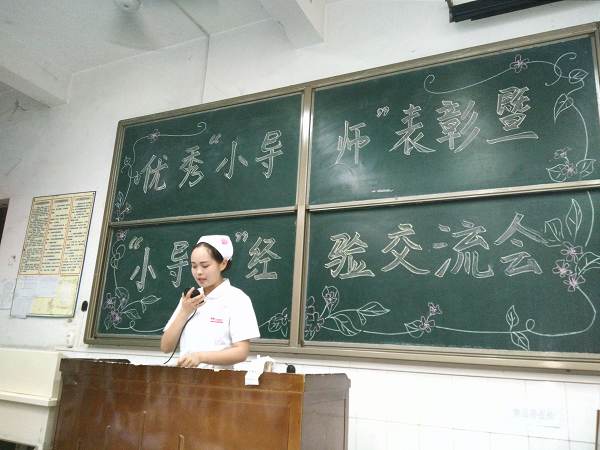 优秀“小导师”表彰暨
“小导”经验交流会